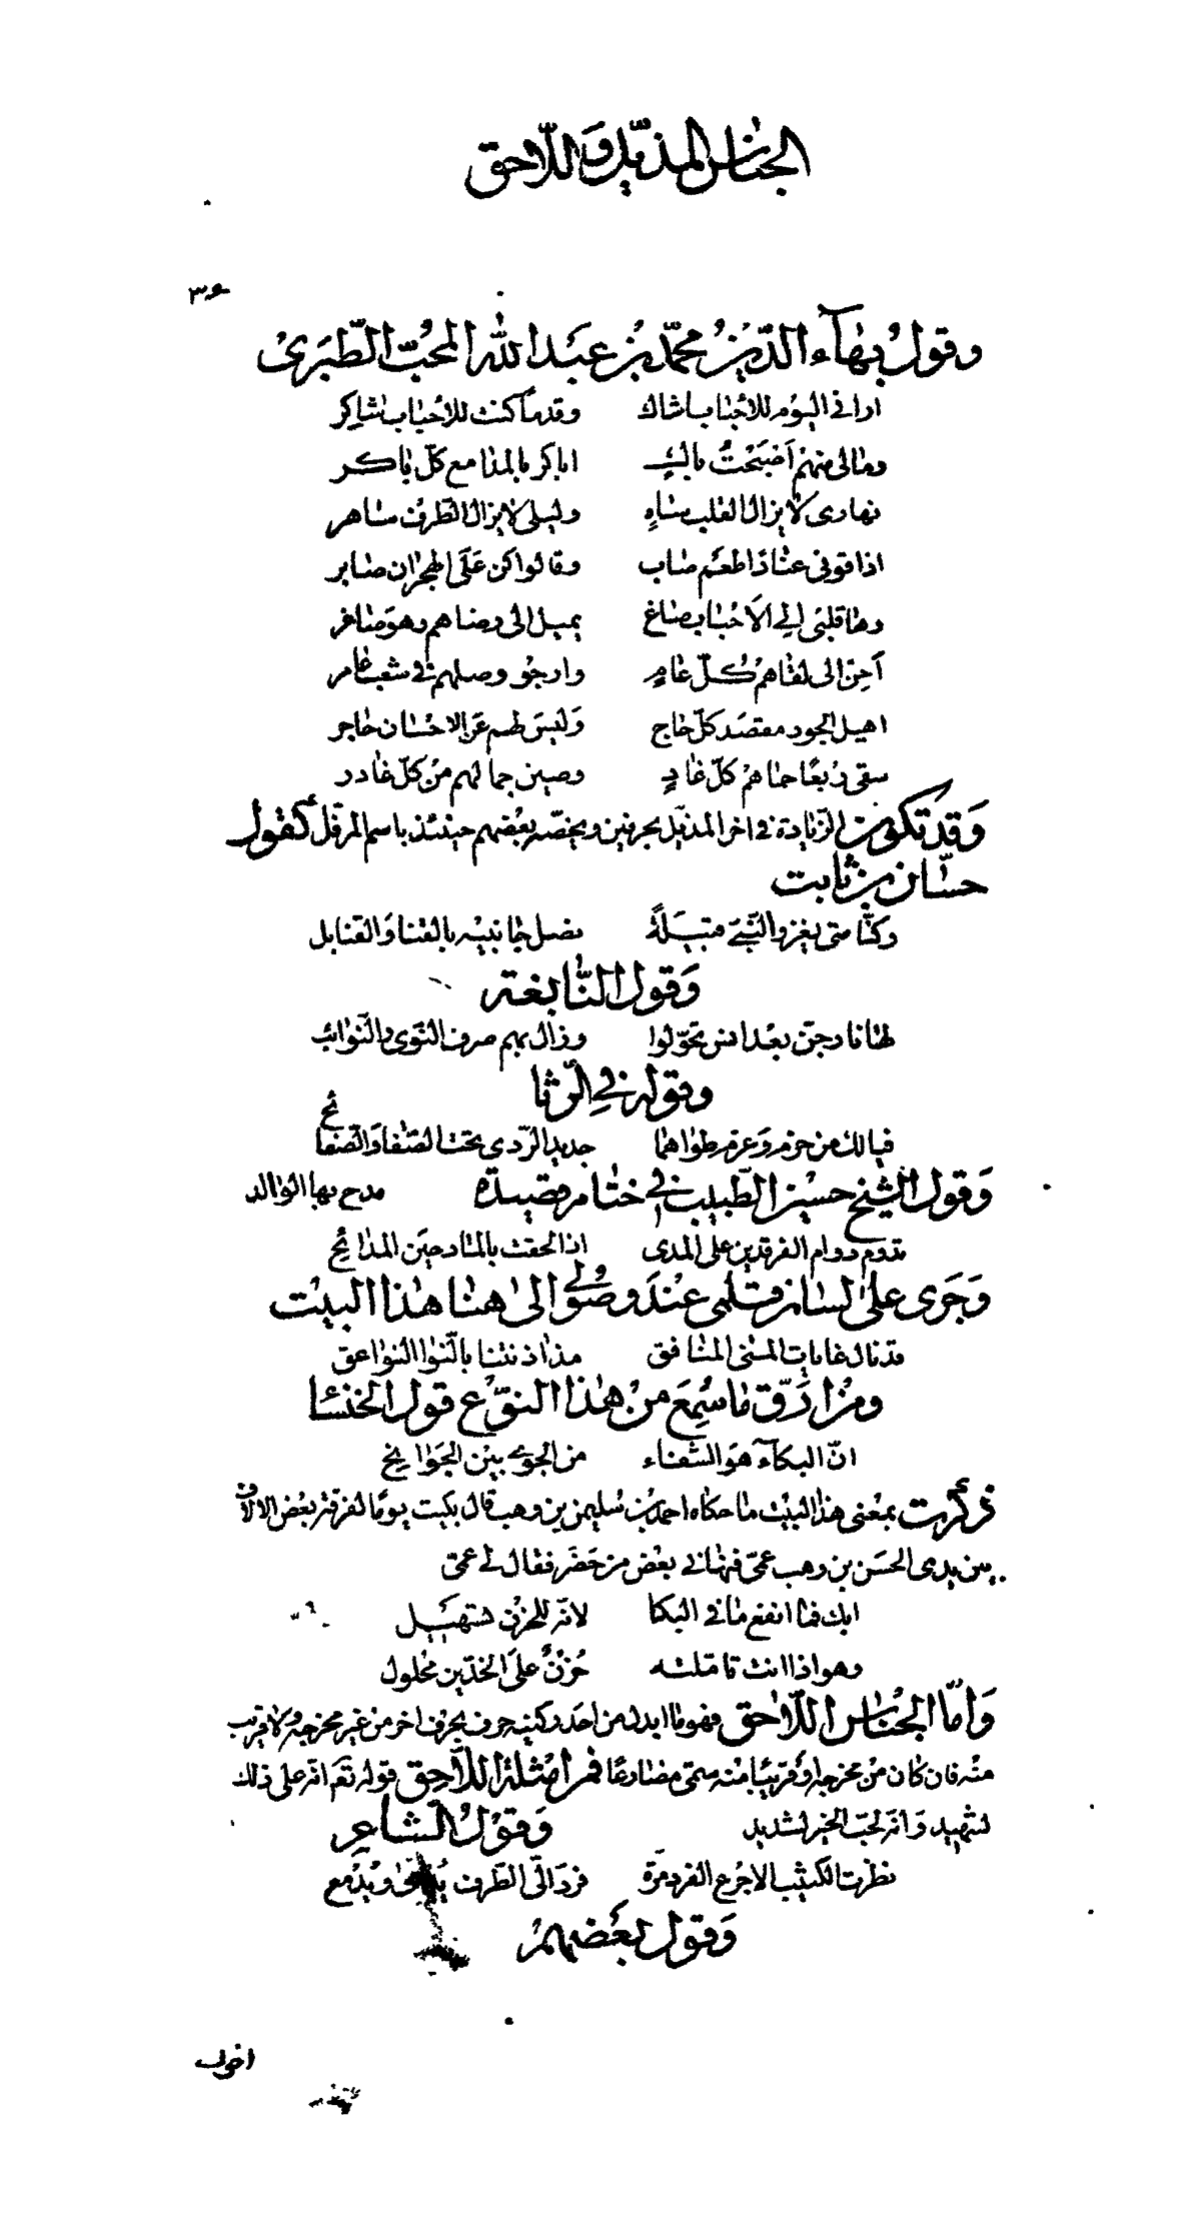 الجناس المذيّل واللّاحق
٣٥
وقول بهآء الدّين محمّد بن عبد الله المحبّ الطّبرى
ارانى اليوم للاحباب شاك وقدما كنت للاحباب شاكر
ومالى منهم اصبحت باك اباكر بالمدامع كلّ باكر
نهارى لا يزال القلب ساهٍ وليلى لا يزال الطّرف ساهر
اذاقونى عنادا طعم صاب وقالوا كن على الهجران صابر
وها قلبى الى الاحباب صاغ يميل الى رضاهم وهو صاغر
احنّ الى لقاهم كلّ عامٍ وارجو وصلهم فى شعب عامر
اهيل الجود مقصد كلّ حاج وليس لهم عن الاحسان حاجر
سقى ربعا حماهم كلّ غادٍ وصين جمالهم من كلّ غادر
وقد تكون الزيادة فى اخر المذيّل بحرفين ويخصّه بعضهم حينئذ باسم المرفّل كقول
حسّان بن ثابت
وكنّا متى يغز والنّبىّ قبيلةً نصل جانبيه بالقنا والقنابل
وقول النّابغة
لها نار جنّ بعد انس تحوّلوا وزال بهم صرف النّوى والنّوائب
وقوله فى الرّثا
فيا لك من حزم وعزم طواهما جديد الرّدى تحت الصّفا والصّفائح
وقول الشيخ حسين الطّبيب فى ختام قصيدة مدح بها الوالد
تدوم دوام الفرقدين على المدى اذا لحقت بالمادحين المدائح
وجرى على لسان قلمى عند وصولى الى هنا هذا البيت
قد نال غايات المنى المنافق مذ اذنتنا بالنّوا النواعق
ومن ارقّ ما سمع من هذا النوع قول الخنسا
انّ البكآء هو الشفاء من الجوى بين الجوانح
ذكرت بمعنى هذا البيت ما حكاه احمد بن سليمن بن وهب قال بكيت يوما لفرقة بعض الالاف
بين يدى الحسن بن وهب عمّى فنهانى بعض من حضر فقال لى عمّى
ابك فما انفع ما فى البكا لانّه للحزن تسهيل
وهو اذا انت تاملته حزن على الخدّين محلول
وامّا الجناس اللّاحق فهو ما ابدل من احد ركنيه حرف بحرف اخر من غير مخرجه ولا قريب
منه فان كان من مخرجه او قريبا منه سمّى مضارعا فمن امثلة اللّاحق قوله تعم انّه على ذلك
لشهيد وانّه لحبّ الخير لشديد وقول الشاعر
نظرت الكثيب الاجرع الفرد مرّة فردّ الىّ الطّرف ويدمع
وقول بعضهم